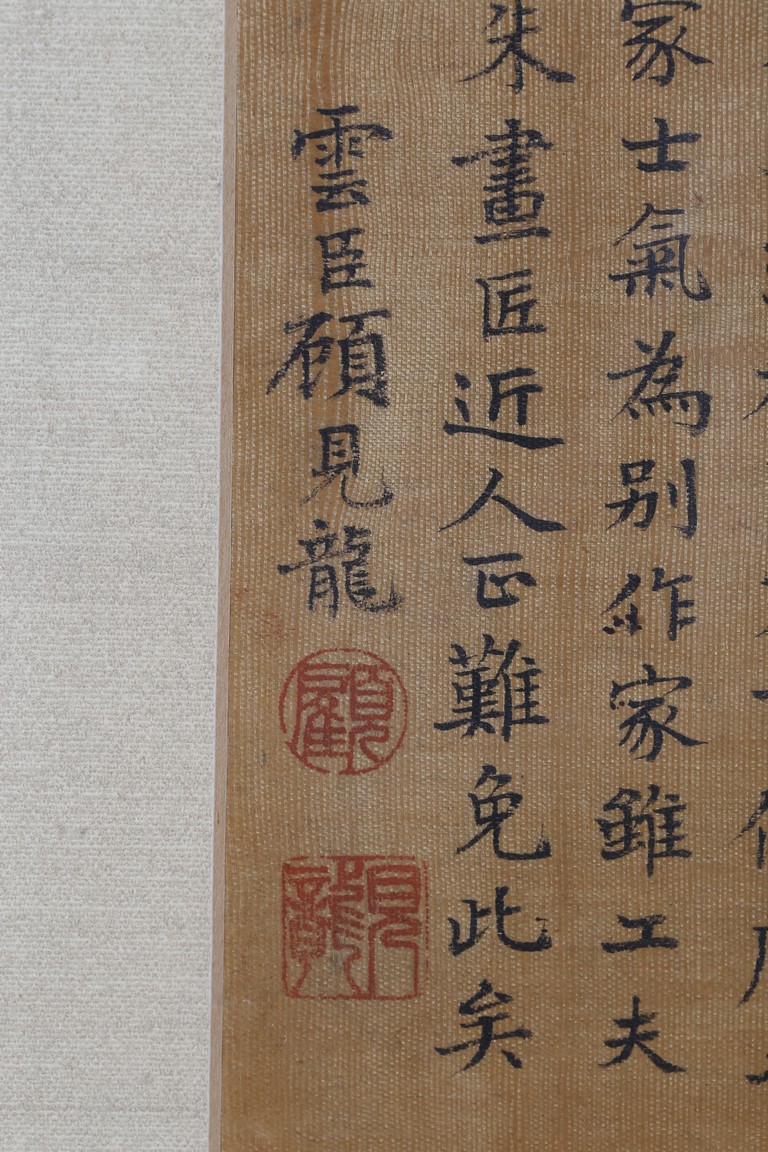 家士氣為別作家雖工夫
朱畫匠近人正難免此矣
雲臣顧見龍
顧
見龍